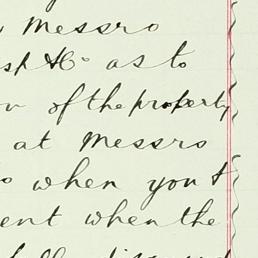 Messrs
& Co as to
of the property
at Messrs
when you &
ent when the